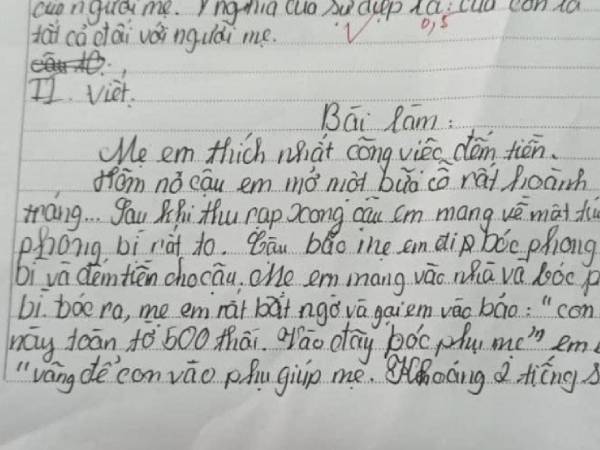 của người mẹ. Ý nghĩa của sự điệp là: của con là
tất cả đối với người mẹ.
0,5
câu 10:
II. Viết.
Bài làm:
Mẹ em thích nhất công việc đếm tiền.
Hôm nở cậu em mở một bữa cỗ rất hoành
tráng... Sau khi thu rạp xong cậu em mang về một tú
phong bì rất to. Cậu bảo mẹ em đi bóc phong
bì và đếm tiền cho cậu. Mẹ em mang vào nhà và bóc p
bì. bóc ra, mẹ em rất bất ngờ và gọi em vào bảo: "con
này toàn tờ 500 thôi. Vào đây bóc phụ mẹ" em
"vâng để con vào phụ giúp mẹ. Khoảng 2 tiếng s